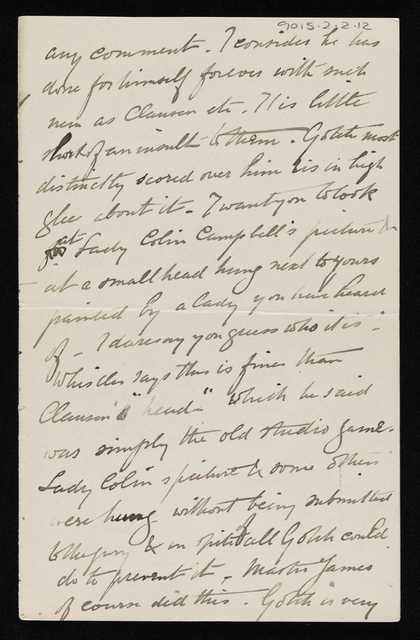 9015-2-2-12
any comment. I consider he has
done for himself forever with such
men as Clausen etc. It is little
short of an insult to them. Gotch most
distinctly scored over him & is in high
glee about it - I want you to look
at Lady Colin Campbell's picture &
at a small head hung next to yours
painted by a lady you have heard
of - I daresay you guess who it is -
Whistler says this is finer than
Clausen's "head" which he said
was simply the old studio game.
Lady Colin's picture & some others
were hung without being submitted
to the jury & in spite of all Gotch could
do to prevent it. Master James
of course did this. Gotch is very